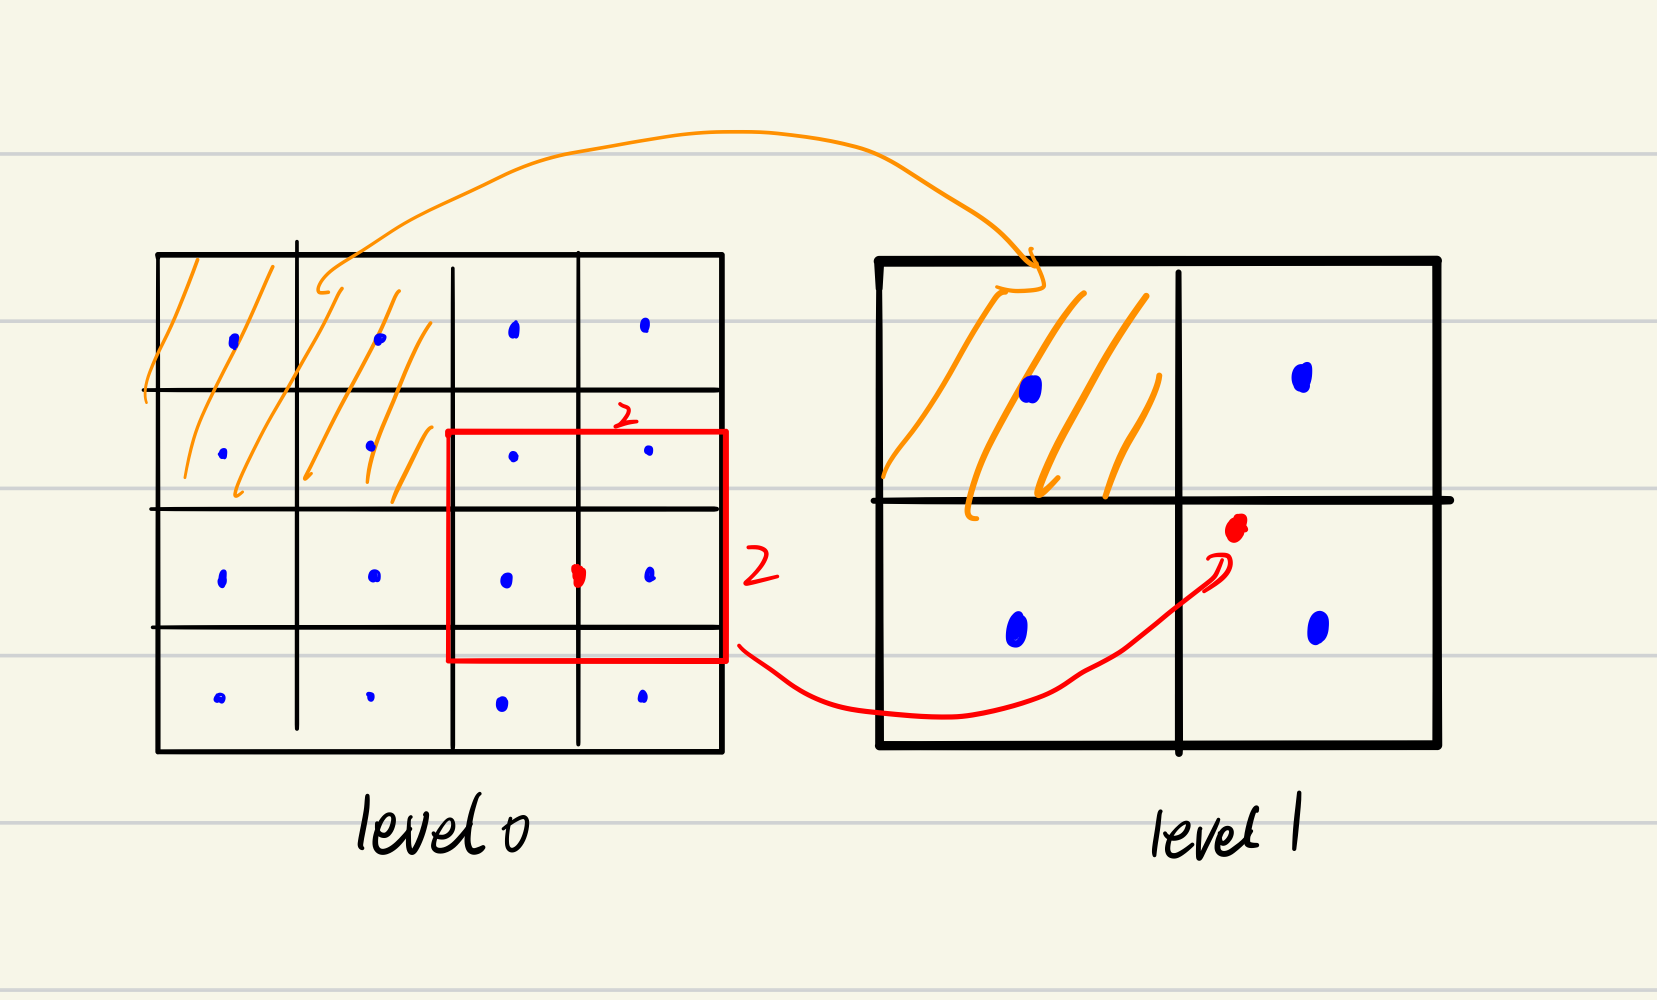 2
2
level 0
level 1